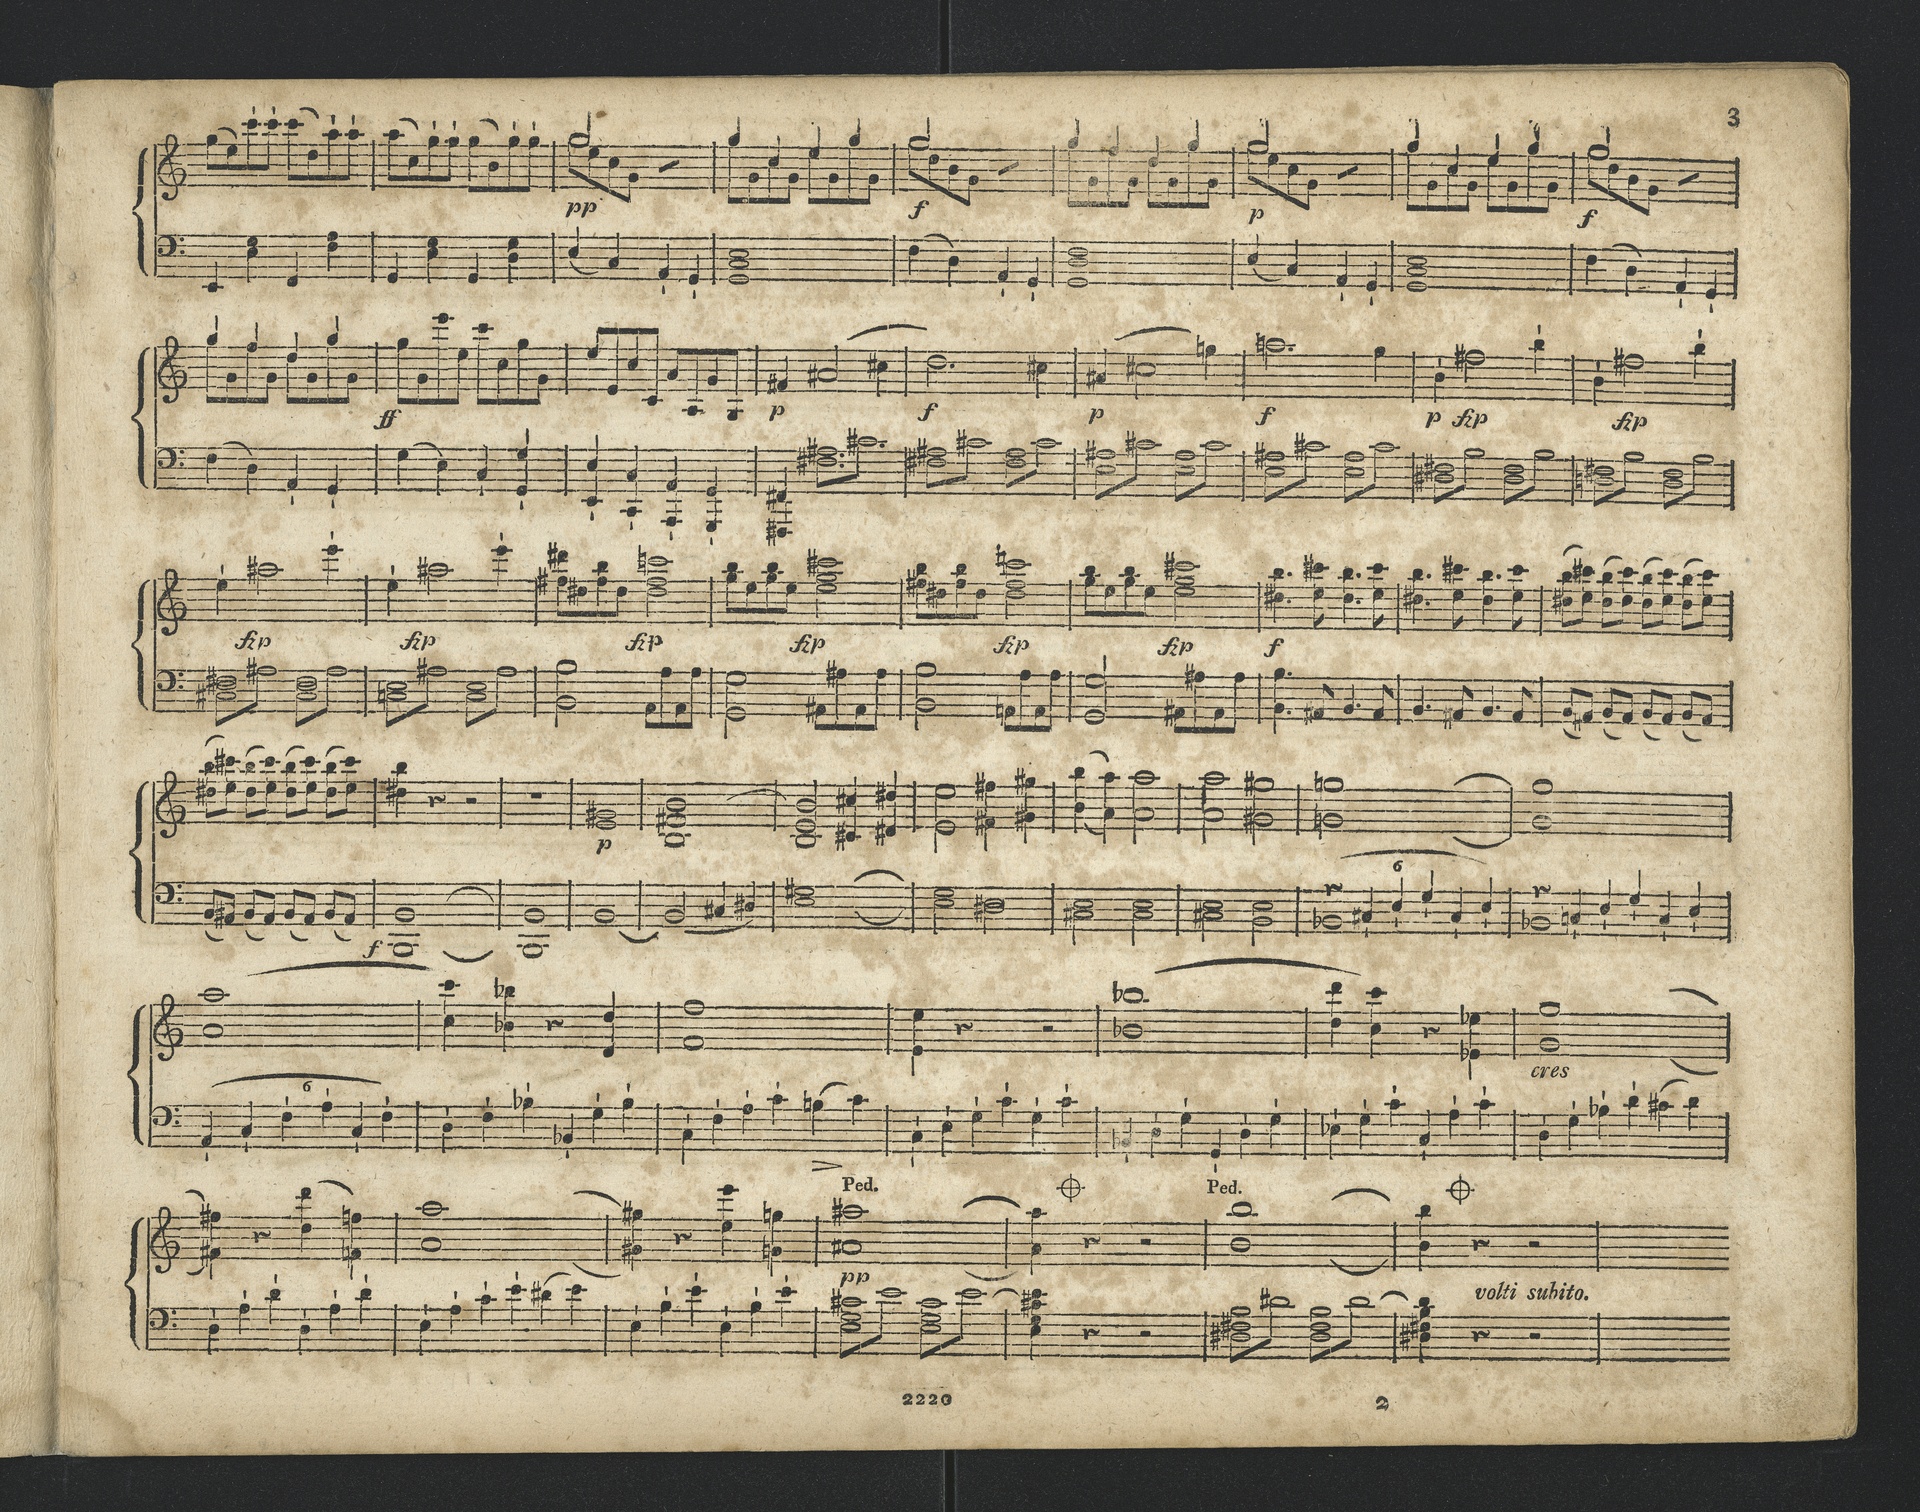 3
pp f p f
ff p f p f p fzp fzp
fzp fzp fzp fzp fzp fzp f
p
6
f
cres
6
Ped. Ped.
pp
volti subito.
2220 2